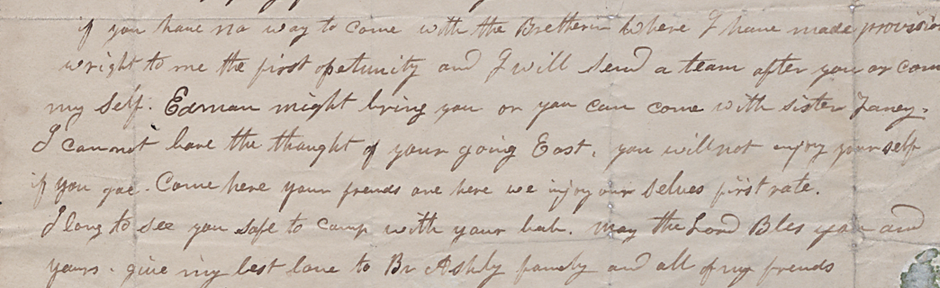 if you have no way to come with the Bretherin where I have made provision
wright to me the first opetunity and I will send a team after you or com
my self. Edman might bring you or you can come with sister Faney.
I cannot bare the thought of your going East, you will not injoy your self
if you goe. Come here your frends are here we injoy our selves first rate.
I long to see you safe to camp with your bab. May the Lord Bles you and
yours. give my best love to Br Ashly famely and all of my frends